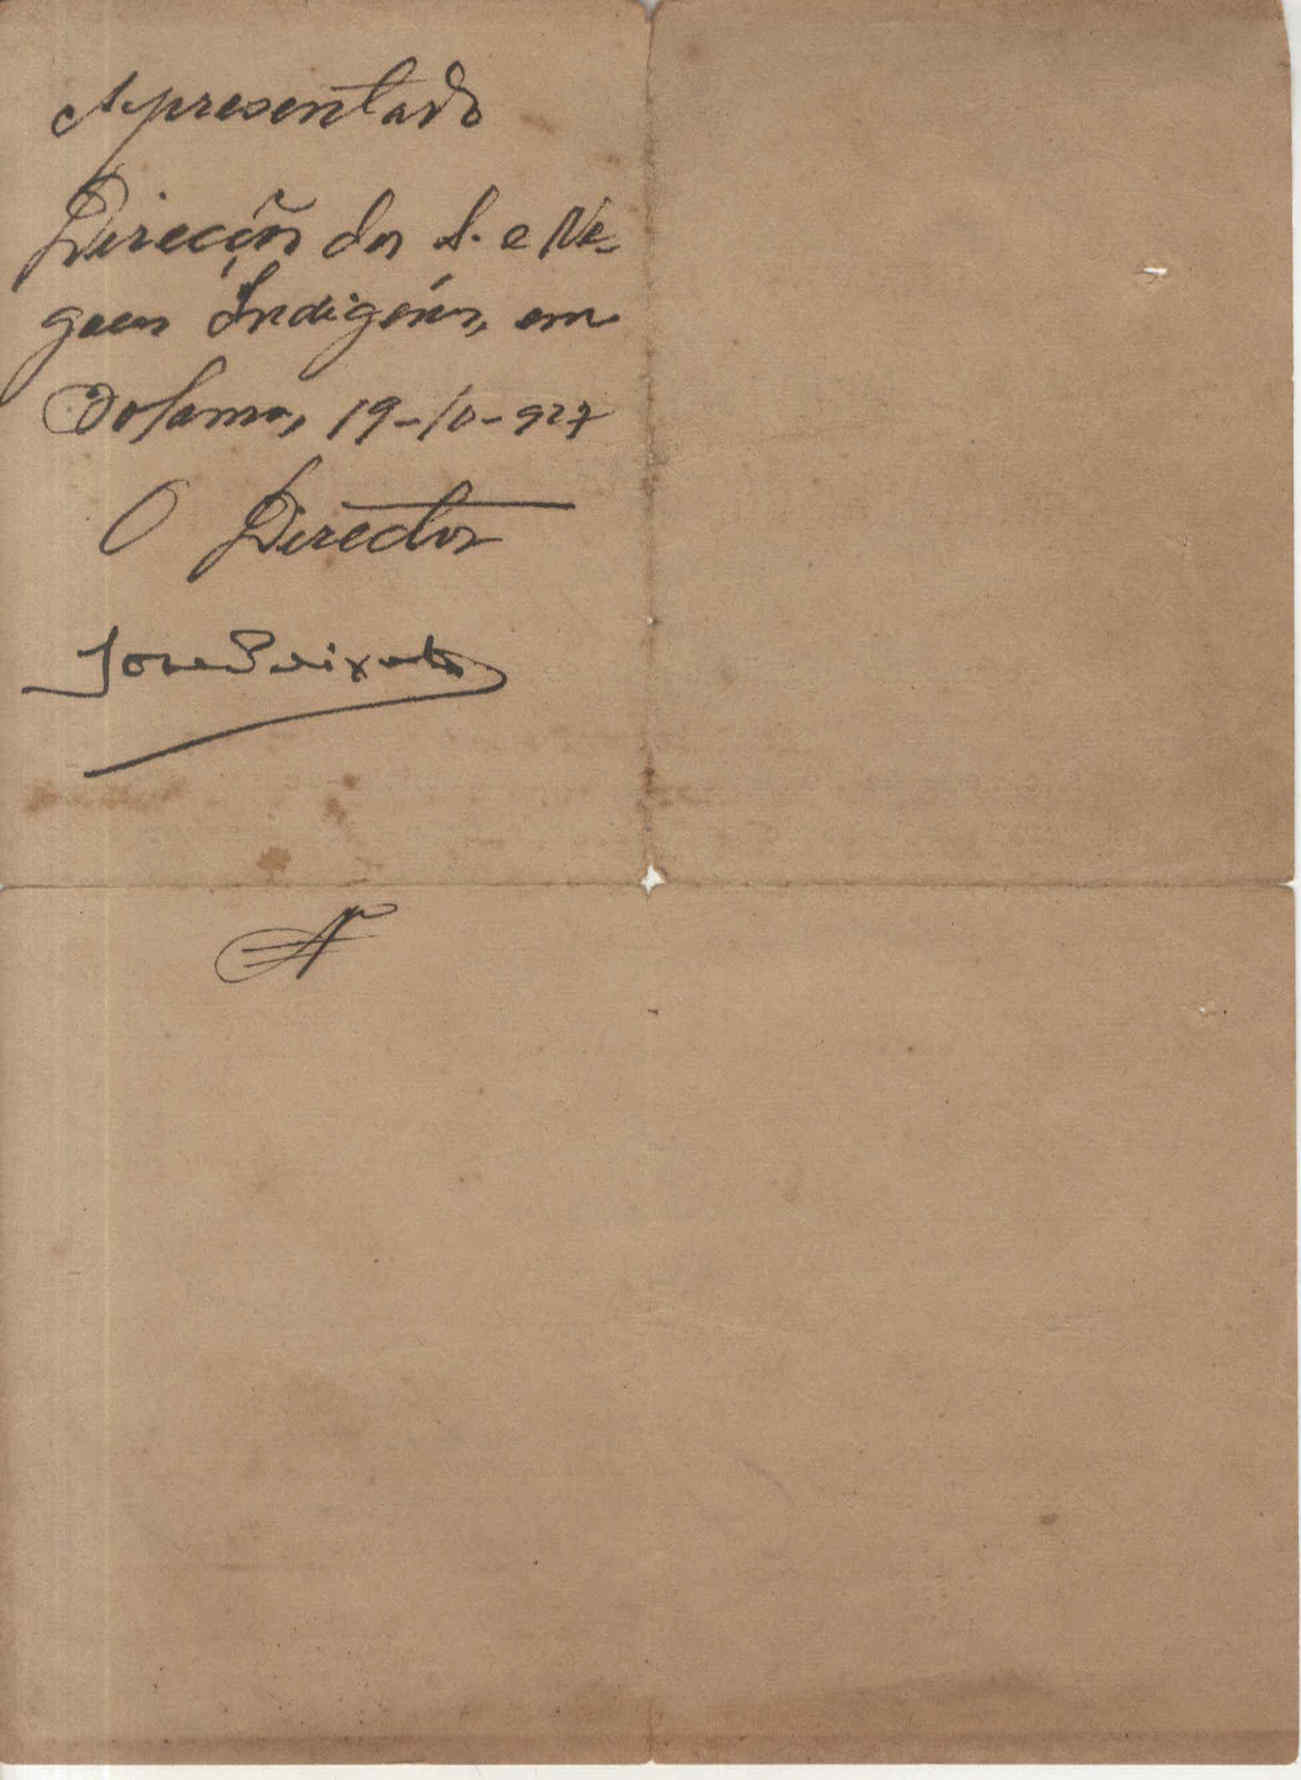 Apresentado
Direcção dos S. e Ne-
gocios Indigenas, em
Bolama, 19-10-927
O Director
José Peixoto